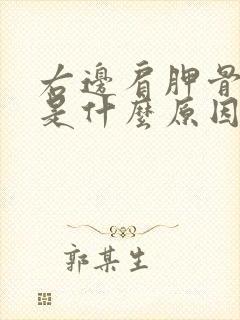 右邊肩胛骨
是什麼原因
郭某生